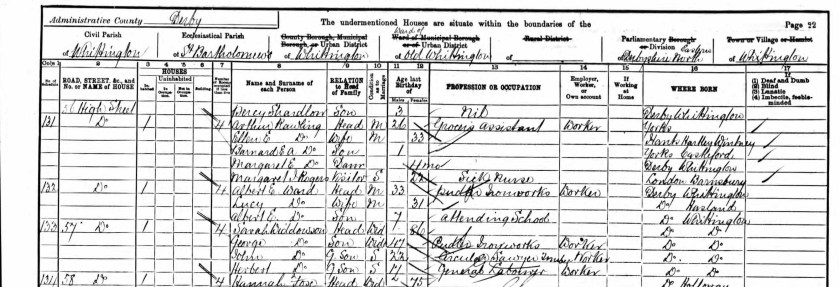 Administrative County Derby The undermentioned Houses are situate within the boundaries of the Page 22
Civil Parish Ecclesiastical Parish County Borough, Municipal Borough, or Urban District Ward of Municipal Borough or of Urban District Rural District Parliamentary Borough or Division Town or Village or Hamlet
of Whittington of St Bartholomews of Whittington of Old Whittington of Derbyshire North Eastern of Whittington
Cols 1 2 3 4 5 6 7 8 9 10 11 12 13 14 15 16 17
ROAD, STREET, &c., and No. or NAME of HOUSE HOUSES Inhabited Uninhabited In Occupation Not in Occupation Building Name and Surname of each Person RELATION to Head of Family Condition as to Marriage Age last Birthday of Males Females PROFESSION OR OCCUPATION Employer, Worker, or Own account If Working at Home WHERE BORN (1) Deaf and Dumb (2) Blind (3) Lunatic (4) Imbecile, feeble-minded
56 High Street Percy Shardlow Son 3 Nil Derby Whittington
131 Do 1 4 Arthur Head M 26 Grocers assistant Worker Yorks
Ellen E Do Wife M 33 Hants Hartley Wintney
Barnard E A Do Son 1 Yorks Castleford
Margaret E Do Daur 4 mo Derby Whittington
Margaret Rogers Visitor S 22 Sick Nurse London Barnsbury
132 Do 1 4 Albert E Ward Head M 33 Ironworks Worker Derby Whittington
Lucy Do Wife M 31 Do Hasland
Albert E Do Son 7 attending School Do Whittington
133 57 Do 1 4 Sarah Widdowson Head Wd Do Do
George Do Son Wdr 47 Ironworks Worker Do Do
John Do G Son S 22 Circular Sawyer Worker Do Do
Herbert Do G Son S 17 General Labourer Worker Do Do
134 58 Do 1 4 Hannah Fox Head Wd 75 Do Holloway